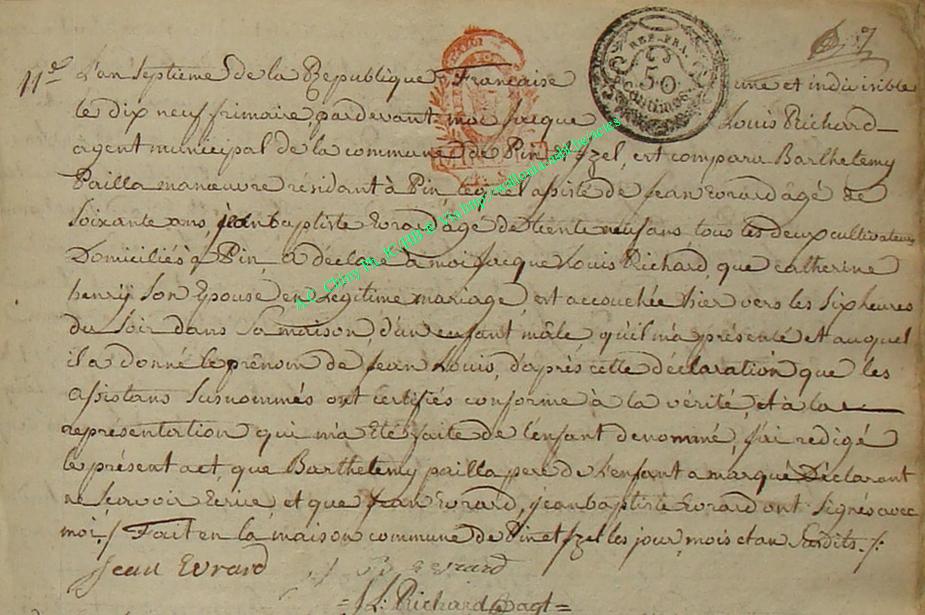 11e L'an Septieme de la Republique Francaise une et indivisible
REP. FRA. 50 Centimes
le dix neuf frimaire, pardevant moi jacque Louis Richard
agent municipal de la commune de Pin et Yzel, est comparu Barthelemy
Pailla manœuvre résidant à Pin lequel assisté de Jean Evrard âgé de
Soixante ans, jean baptiste Evrard âgé de trente neuf ans tous les deux cultivateurs
Domiciliés à Pin, a déclaré à moi jacque Louis Richard, que catherine
henrÿ Son Epouse en Légitime mariage, est accouchée hier vers les six heures
du Soir dans Sa maison, d'un enfant mâle, qu'il m'a présenté et auquel
il a donné le prénom de Jean Louis, d'après cette déclaration que les
assistans Susnommés ont certifiés conforme à la vérité, et à la
représentation qui m'a Eté faite de l'enfant denommé, j'ai redigé
le présent act que Barthelemy pailla pere de L'enfant a marqué Déclarant
ne Scavoir Ecrire et que Jean Evrard, jean baptiste Evrard ont Signés avec
moi ./. Fait en la maison commune de Pin et Yzel les jour, mois et an Susdits. /.
Jean Evrard J B evrard
=J L: Richard agt=